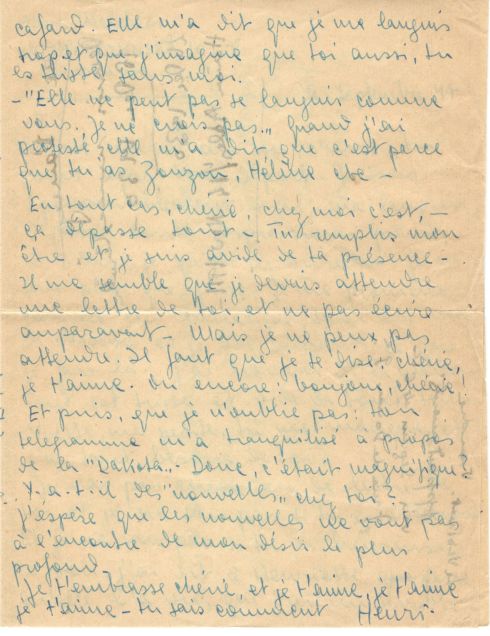 cafard. Elle m'a dit que je me languis
trop et que j'imagine que toi aussi, tu
es triste sans moi.
- "Elle ne peut pas se languir comme
vous, je ne crois pas„ Quand j'ai
protesté elle m'a dit que c'est parce
que tu as Zouzou, Hélène etc -
En tout cas, chérie, chez moi c'est, -
ça dépasse tout - Tu remplis mon
être et je suis avide de ta présence -
Il me semble que je devais attendre
une lettre de toi et ne pas écrire
auparavant - Mais je ne peux pas
attendre. Il faut que je te dise: chérie,
je t'aime. Ou encore: bonjour, chérie!
Et puis, que je n'oublie pas: ton
télégramme m'a tranquilisé à propos
de la "Dakota„. Donc, c'était magnifique?
Y-a-t-il des "nouvelles„ chez toi?
J'espère que les nouvelles ne vont pas
à l'encontre de mon désir le plus
profond -
Je t'embrasse chérie, et je t'aime, je t'aime
je t'aime - tu sais comment Henri.